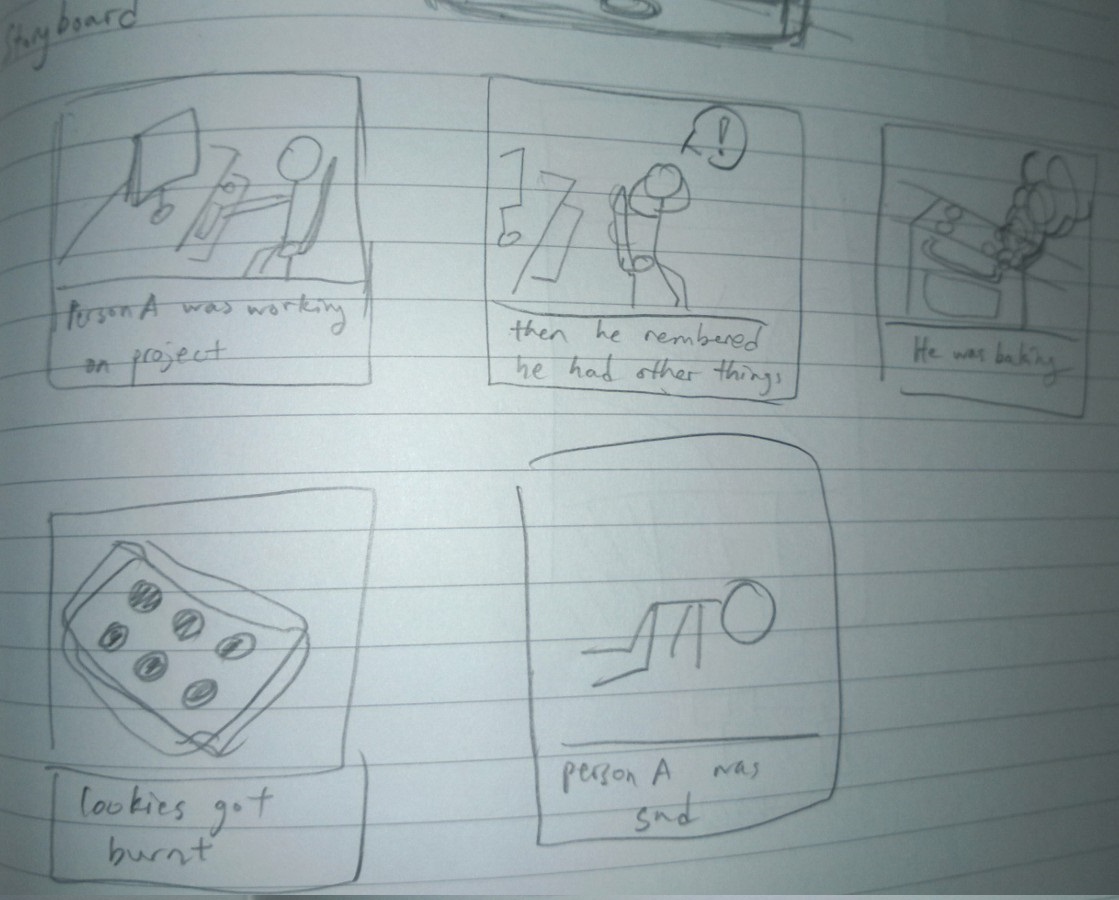 Storyboard
Person A was working
on project
!
then he rembered
he had other things
He was baking
Cookies got
burnt
person A was
sad